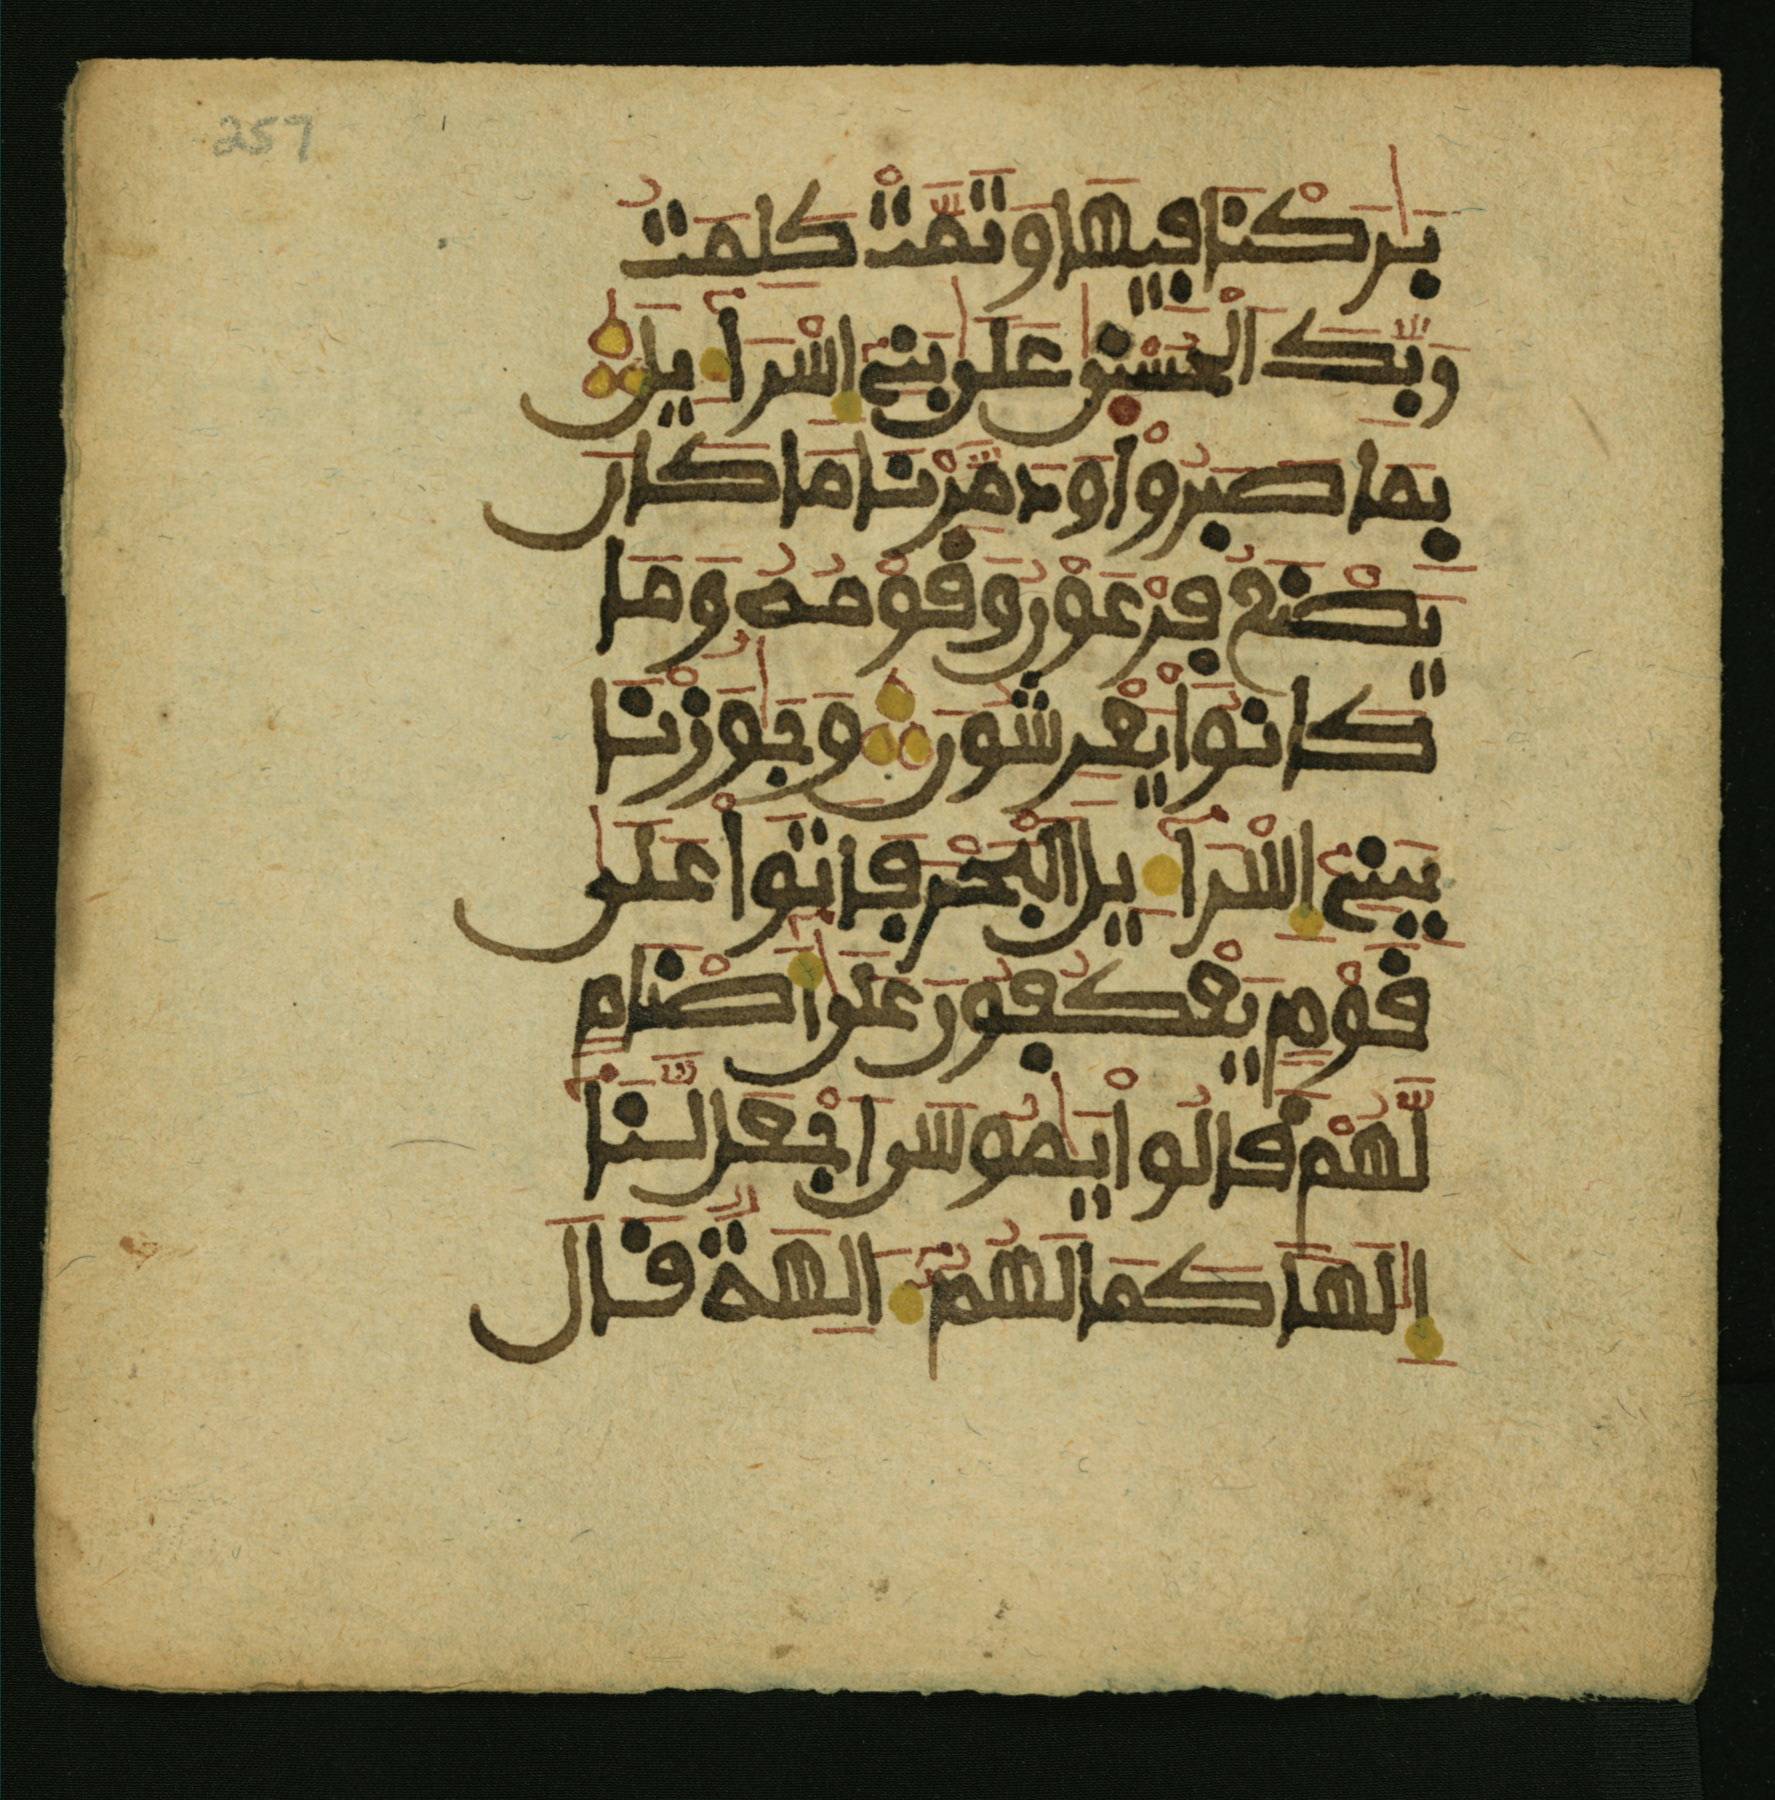 257
بَٰرَكْنَا فِيهَا وَتَمَّتْ كَلِمَتُ
رَبِّكَ الْحُسْنَىٰ عَلَىٰ بَنِےٓ إِسْرَآءِيلَ
بِمَا صَبَرُواْ وَدَمَّرْنَا مَا كَانَ
يَصْنَعُ فِرْعَوْنُ وَقَوْمُهُ وَمَا
كَانُواْ يَعْرِشُونَ وَجَٰوَزْنَا
بِبَنِےٓ إِسْرَآءِيلَ الْبَحْرَ فَأَتَوْاْ عَلَىٰ
قَوْمٍ يَعْكُفُونَ عَلَىٰٓ أَصْنَامٍ
لَّهُمْ قَالُواْ يَٰمُوسَى اجْعَل لَّنَآ
إِلَٰهًا كَمَا لَهُمُۥٓ ءَالِهَةٌ قَالَ